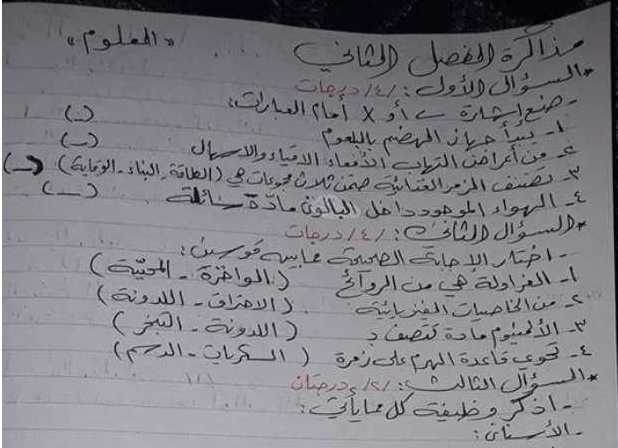 مذاكرة الفصل الثاني "العلوم"
* السؤال الأول: /٤/ درجات
- ضع إشارة ✓ أو X أمام العبارات:
١- يبدأ جهاز الهضم بالبلعوم (_)
٢- من أعراض التهاب الأمعاء الاقياء والاسهال (_)
٣- تصنف الزمر الغذائية ضمن ثلاث مجموعات هي (الطاقة - البناء - الوقاية) (_)
٤- الهواء الموجود داخل البالون مادة سائلة (_)
* السؤال الثاني: /٤/ درجات
- اختار الإجابة الصحيحة مما بين قوسين:
١- الفراولة هي من الروائح (الواخزة - المحببة)
٢- من الخاصيات الفيزيائية (الاحتراق - اللدونة)
٣- الألمنيوم مادة تتصف بـ (اللدونة - التبخر)
٤- تحوي قاعدة الهرم على زمرة (السكريات - الدسم)
* السؤال الثالث: /٢/ درجتان
- اذكر وظيفة كل مما يأتي:
- الأسنان: